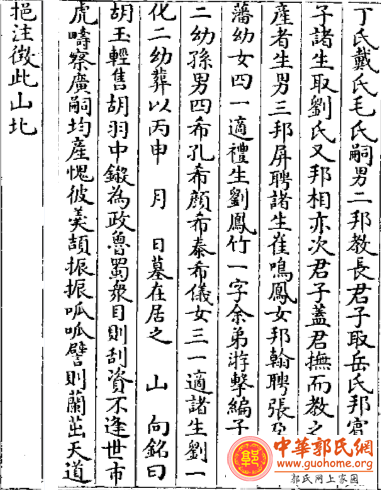 丁氏戴氏毛氏嗣男二邦教長君子取岳氏邦
子諸生取劉氏又邦相亦次君子蓋君撫而教之
產者生男三邦屏聘諸生崔鳴鳳女邦翰聘張
藩幼女四一適禮生劉鳳竹一字余弟游擊編子
二幼孫男四希孔希顏希秦希儀女三一適諸生劉一
化二幼葬以丙申 月 日墓在居之 山 向銘曰
胡玉輕售胡羽中鎩為政魯蜀衆目則刮資不逢世市
虎疇察廣嗣均產愧彼羙頡振振呱呱譬則蘭茁天道
挹注徵此山北
中華郭氏網
www.guohome.org
郭氏網上家園